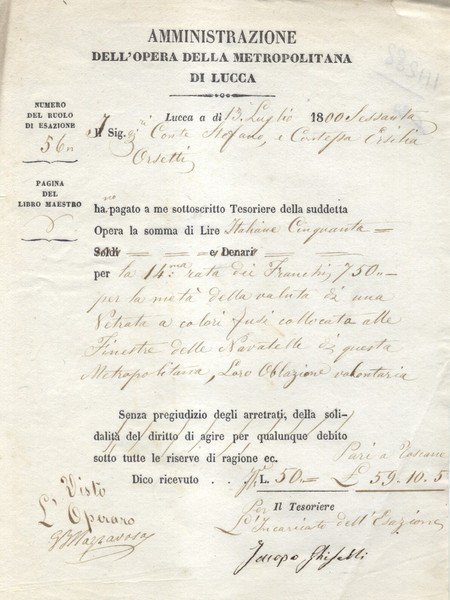 AMMINISTRAZIONE
DELL'OPERA DELLA METROPOLITANA
DI LUCCA
NUMERO
DEL RUOLO
DI ESAZIONE
56
PAGINA
DEL
LIBRO MAESTRO
Lucca a dì 13 Luglio 1800 Sessanta
Il Sig. Conte Stefano, e Contessa Ersilia
Orsetti
hanno pagato a me sottoscritto Tesoriere della suddetta
Opera la somma di Lire Italiane Cinquanta =
Soldi = = e Denari = =
per la 14.ma rata di Franchi 750 =
per la metà della valuta di una
Vetrata a colori fusi collocata alle
Finestre delle Navatelle di questa
Metropolitana, Loro Oblazione volontaria
Senza pregiudizio degli arretrati, della soli-
dalità del diritto di agire per qualunque debito
sotto tutte le riserve di ragione ec.
Pari a Toscane
Dico ricevuto . . L. 50 = £ 59.10.5
Visto
L'Operaro
Per Il Tesoriere
L'Incaricato dell'Esazione
Jacopo